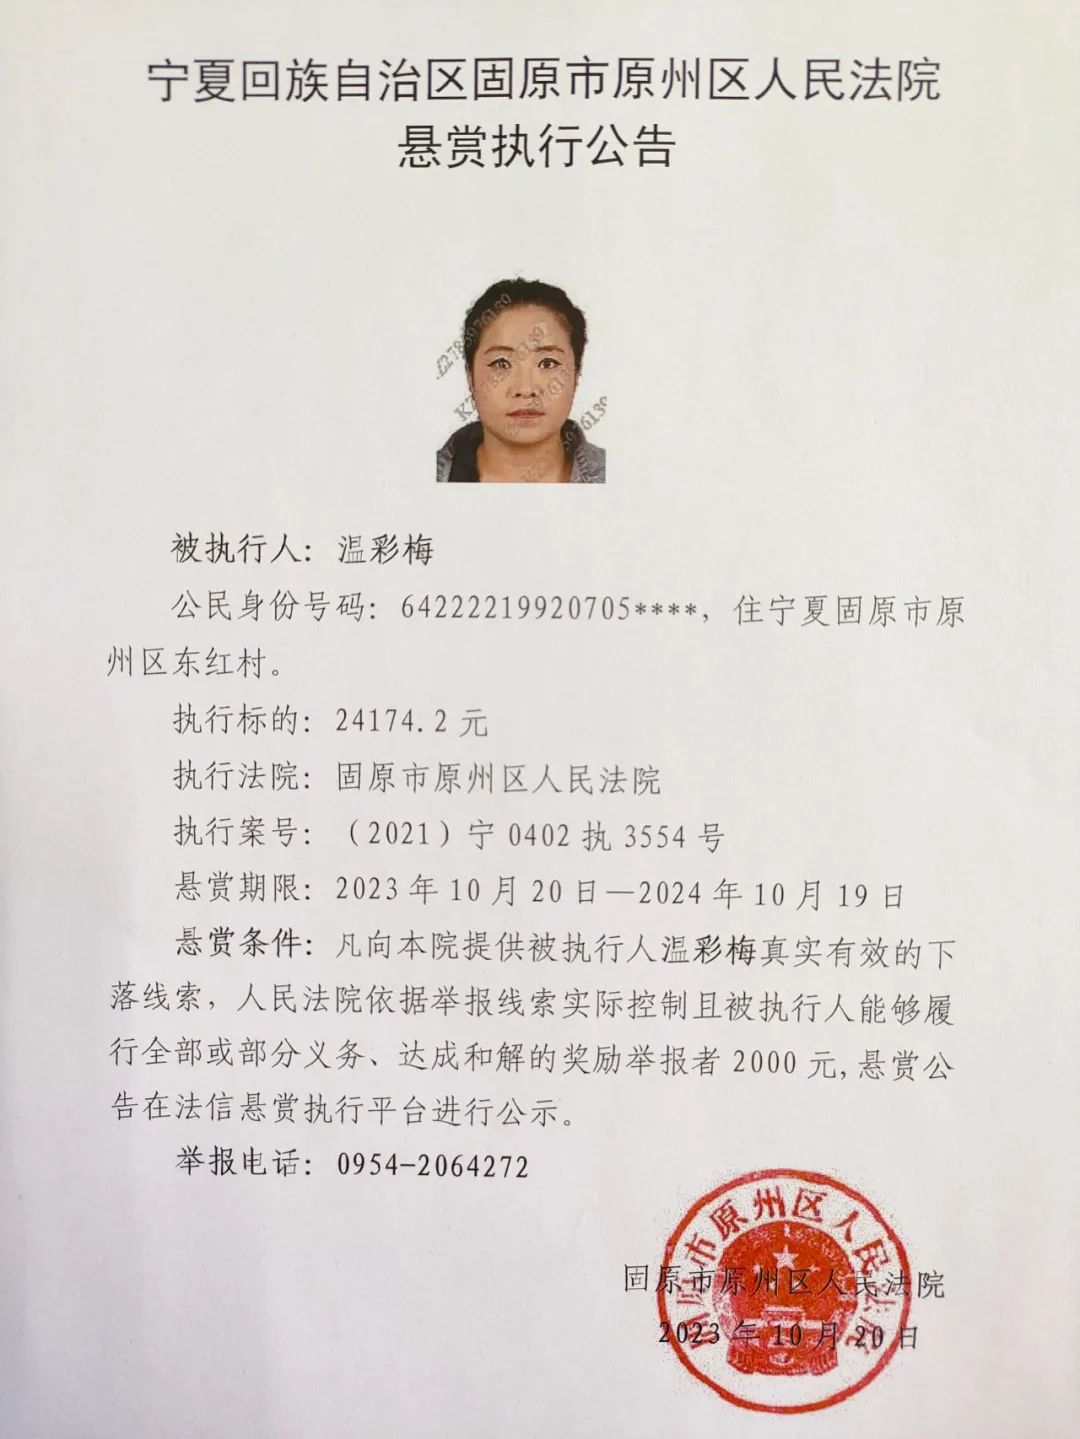 宁夏回族自治区固原市原州区人民法院
悬赏执行公告
被执行人：温彩梅
公民身份号码：64222219920705****，住宁夏固原市原
州区东红村。
执行标的：24174.2 元
执行法院：固原市原州区人民法院
执行案号：（2021）宁 0402 执 3554 号
悬赏期限：2023 年 10 月 20 日—2024 年 10 月 19 日
悬赏条件：凡向本院提供被执行人温彩梅真实有效的下
落线索，人民法院依据举报线索实际控制且被执行人能够履
行全部或部分义务、达成和解的奖励举报者 2000 元,悬赏公
告在法信悬赏执行平台进行公示。
举报电话：0954-2064272
固原市原州区人民法院
固原市原州区人民法院
2023 年 10 月 20 日